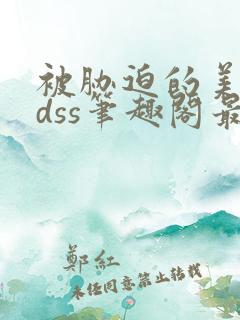 被胁迫的美
dss笔趣阁最
郑红
未经同意禁止转载